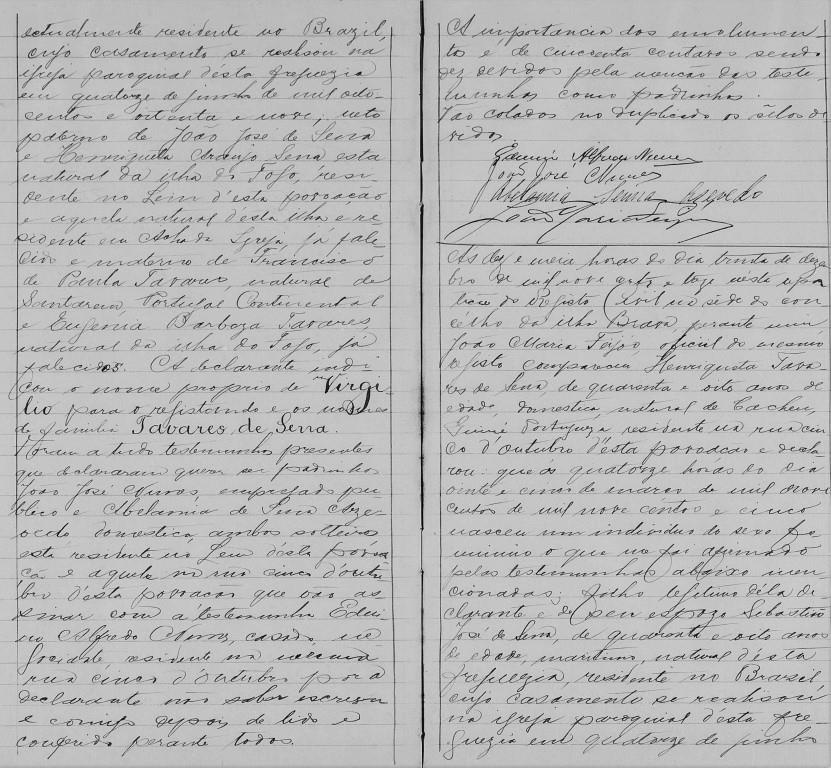 actualmente residente no Brazil,
cujo casamento se realisou na
igreja paroquial désta freguezia
em quatorze de junho de mil oito-
centos e oitenta e nove; neto
paterno de João José de Senna
e Henriqueta Araujo Sena esta
natural da ilha do Fogo, resi-
dente no Lem d'esta povoação
e aquele natural desta ilha e re-
sidente em Achada Igreja, já fale-
cido e materno de Francisco
de Paula Tavares, natural de
Santarem, Portugal Continental
e Eugenia Barboza Tavares,
natural da ilha do Fogo, já
falecidos. A declarante indi-
cou o nome proprio de "Virgi-
lio para o registando e os
de familia Tavares de Sena.
Foram a tudo testemunhas presentes
que declararam querer ser padrinhos
João José Nunes, empregado pu-
blico e Abelamia de Sena Aze-
vedo domestica, ambos solteiros
esta residente no Lem désta povoa-
ção e aquele na rua cinco d'outu-
bro d'esta povoação que vão as-
sinar com a testemunha Edui-
no Alfredo Nunes, casado, ne-
gociante residente na mesma
rua cinco d'Outubro por a
declarante não saber escrever
e comigo depois de lido e
conferido perante todos.
A importancia dos emolumen-
tos é de cincoenta centavos sendo
dez devidos pela menção das teste-
munhas como padrinhos.
Vão colados no duplicado os sêlos de-
vidos.
Eduino Alfredo Nunes
João José Nunes
Abelamia Senna Azevedo
João Maria Feijoo
As dez e meia horas do dia trinta de dezem-
bro de mil nove centos e treze nésta repar-
tição do Registo Civil na séde do con-
celho da ilha Brava, perante mim,
João Maria Feijoó, oficial do mesmo
registo compareceu Henriqueta Tava-
res de Sena, de quarenta e oito anos de
edade, domestica, natural de Cacheu,
Guiné Portugueza residente na rua cin-
co d'Outubro d'ésta povoação e decla-
rou: que ás quatorze horas do dia
vinte e cinco de março de mil nove
centos de mil nove centos e cinco
nasceu um individuo do sexo fe-
minino o que me foi afirmado
pelas testemunhas abaixo men-
cionadas; filho legitimo déla de-
clarante e de seu espozo Sebastião
José de Sena, de quarenta e oito anos
de edade, maritimo, natural d'ésta
freguezia, residente no Brazil
cujo casamento se realisou
na igreja paroquial d'esta fre-
guezia em quatorze de junho